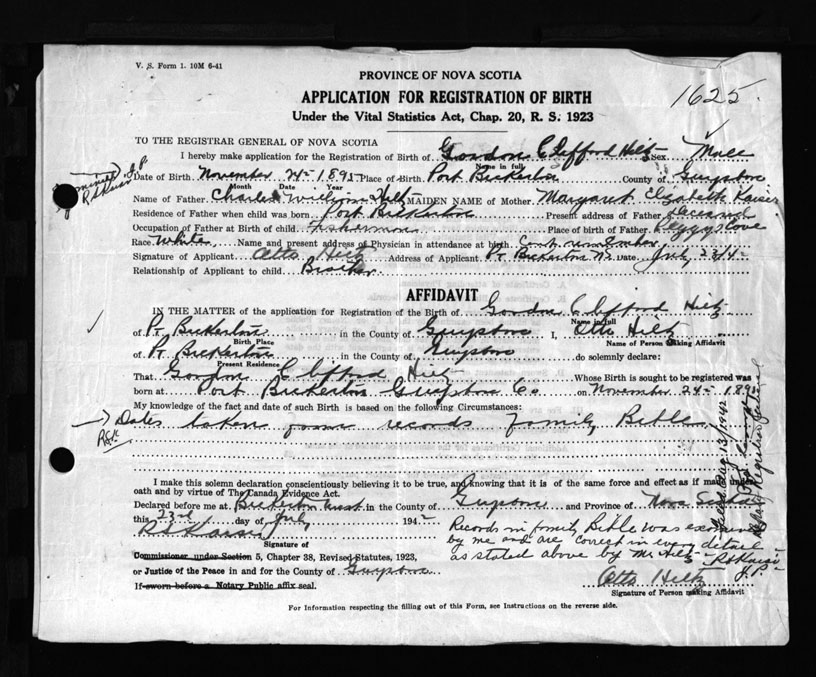 V. S. Form 1. 10M 6-41
PROVINCE OF NOVA SCOTIA
APPLICATION FOR REGISTRATION OF BIRTH
1625
Under the Vital Statistics Act, Chap. 20, R. S. 1923
TO THE REGISTRAR GENERAL OF NOVA SCOTIA
I hereby make application for the Registration of Birth of Gordon Clifford Hiltz Sex Male
Name in full
Date of Birth November 24 189 Place of Birth Port Bickerton County of Guysboro
Month Date Year
Name of Father Charles William Hiltz MAIDEN NAME of Mother Margaret Elizabeth Kaiser
Residence of Father when child was born Port Bickerton Present address of Father deceased
Occupation of Father at Birth of child Fisherman Place of birth of Father Peggys Cove
Race White Name and present address of Physician in attendance at birth Cant remember
Signature of Applicant Otto Hiltz Address of Applicant Pt. Bickerton N.S. Date July 23/42
Relationship of Applicant to child Brother
AFFIDAVIT
IN THE MATTER of the application for Registration of the Birth of Gordon Clifford Hiltz
Name in full
of Pt. Bickerton in the County of Guysboro I, Otto Hiltz
Birth Place Name of Person Making Affidavit
of Pt. Bickerton in the County of Guysboro do solemnly declare:
Present Residence
That Gordon Clifford Hiltz Whose Birth is sought to be registered was
born at Port Bickerton Guysboro Co on November 24 189
My knowledge of the fact and date of such Birth is based on the following Circumstances:
Dates taken from records family Bible
R.S.K.
I make this solemn declaration conscientiously believing it to be true, and knowing that it is of the same force and effect as if made under
oath and by virtue of The Canada Evidence Act.
Declared before me at Bickerton West in the County of Guysboro and Province of Nova Scotia
this 23rd day of July 1942
R S Kaiser
Signature of
Records in family Bible was examined
by me and are correct in every detail
as stated above by Mr. Hiltz
R S Kaiser
J. P.
Commissioner under Section 5, Chapter 38, Revised Statutes, 1923,
or Justice of the Peace in and for the County of Guysboro
If sworn before a Notary Public affix seal.
Otto Hiltz
Signature of Person making Affidavit
For Information respecting the filling out of this Form, see Instructions on the reverse side.
R S Kaiser J.P.
Aug 13/1942
Registrar General